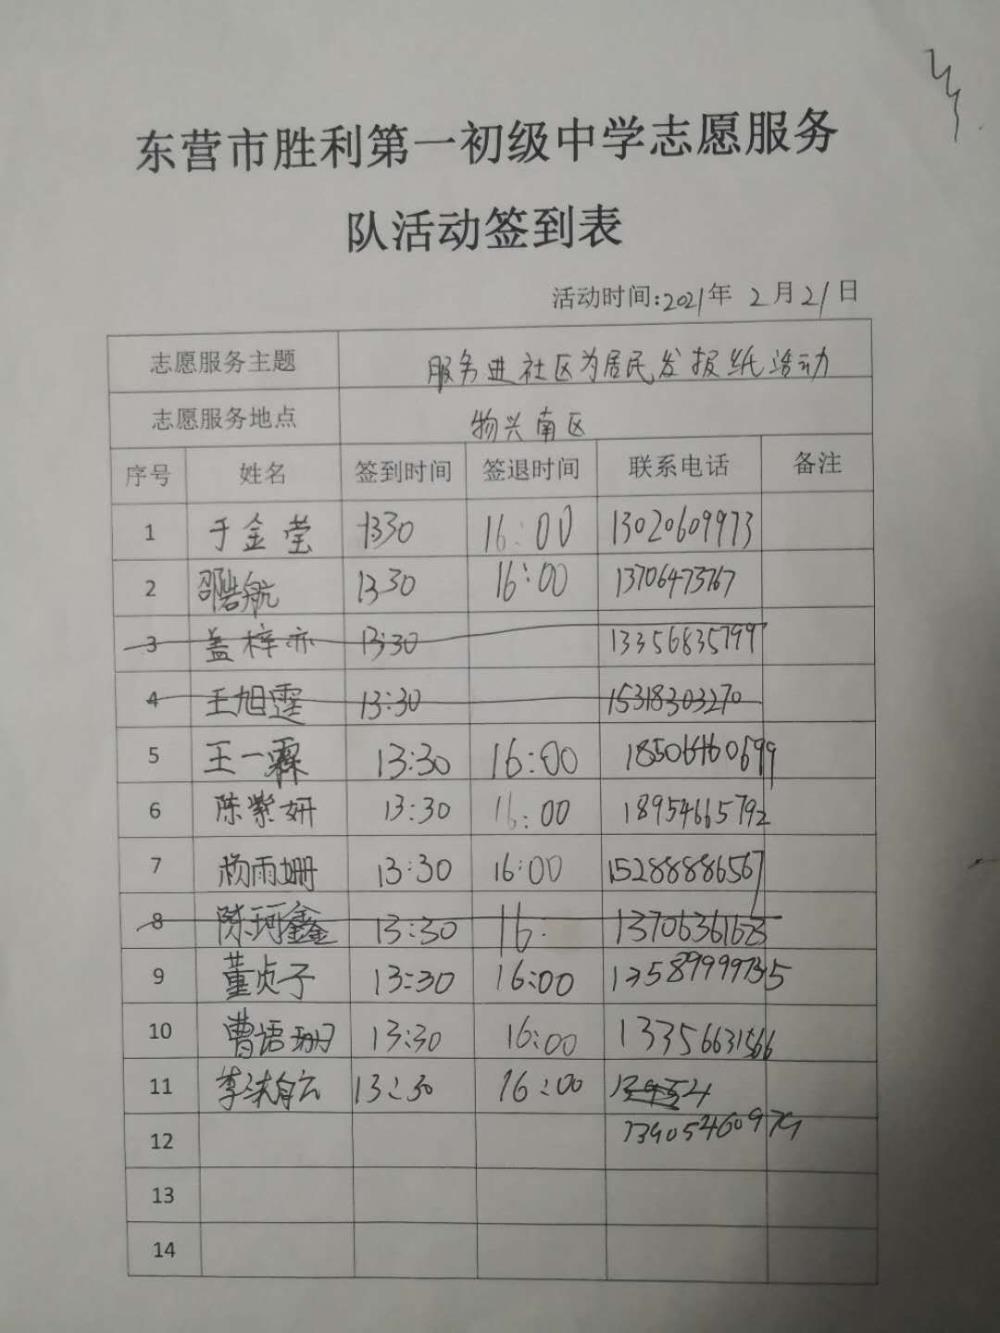 东营市胜利第一初级中学志愿服务
队活动签到表
活动时间:2021年 2月21日
志愿服务主题 服务进社区为居民发报纸活动
志愿服务地点 物兴南区
序号 姓名 签到时间 签退时间 联系电话 备注
1 于金莹 1330 16:00 13020609973
2 邵浩航 1330 16:00 13706473767
3 盖梓亦 13:30 13356835799
4 王旭霆 13:30 15318303270
5 王一霖 13:30 16:00
6 陈紫妍 13:30 16:00 18954665792
7 杨雨姗 13:30 16:00 15288886567
8 陈珂鑫 13:30 16: 13706361623
9 董贞子 13:30 16:00 13589999735
10 曹语珊 13:30 16:00 13356631566
11 13:30 16:00
12 13905460979
13
14